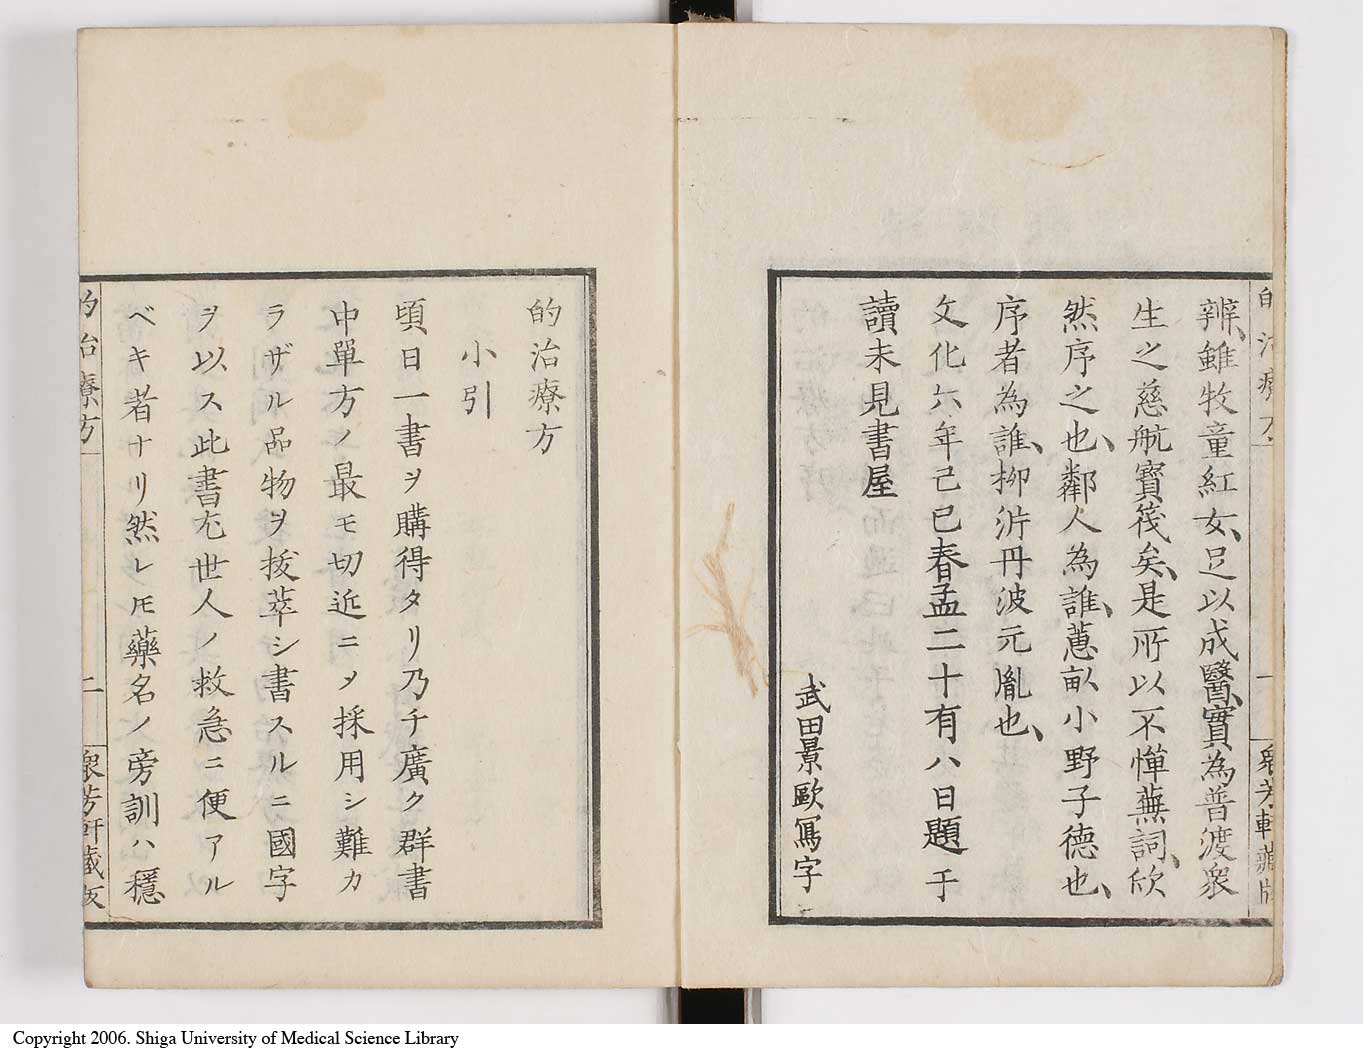 辨、雖牧童紅女、足以成醫、實為普渡衆
生之慈航寶筏矣、是所以不憚蕪詞、欣
然序之也、鄰人為誰、蕙畝小野子德也、
序者為誰、柳沜丹波元胤也、
文化六年己巳春孟二十有八日題于
讀未見書屋
武田景歐寫字
的治療方
小引
頃日一書ヲ購得タリ乃チ廣ク群書
中單方ノ最モ切近ニメ採用シ難カ
ラザル品物ヲ拔萃シ書スルニ國字
ヲ以ス此書尤世人ノ救急ニ便アル
ベキ者ナリ然レ𪜈藥名ノ旁訓ハ穩
的治療方 二 衆芳軒藏板
的治療方 一 衆芳軒藏版
Copyright 2006. Shiga University of Medical Science Library